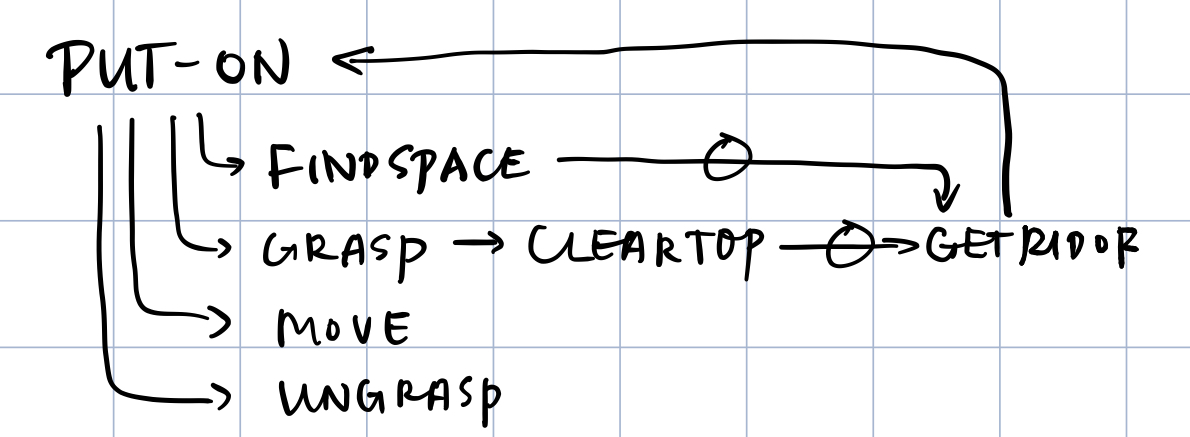 PUT-ON
FINDSPACE
GRASP CLEARTOP GETRIDOF
MOVE
UNGRASP